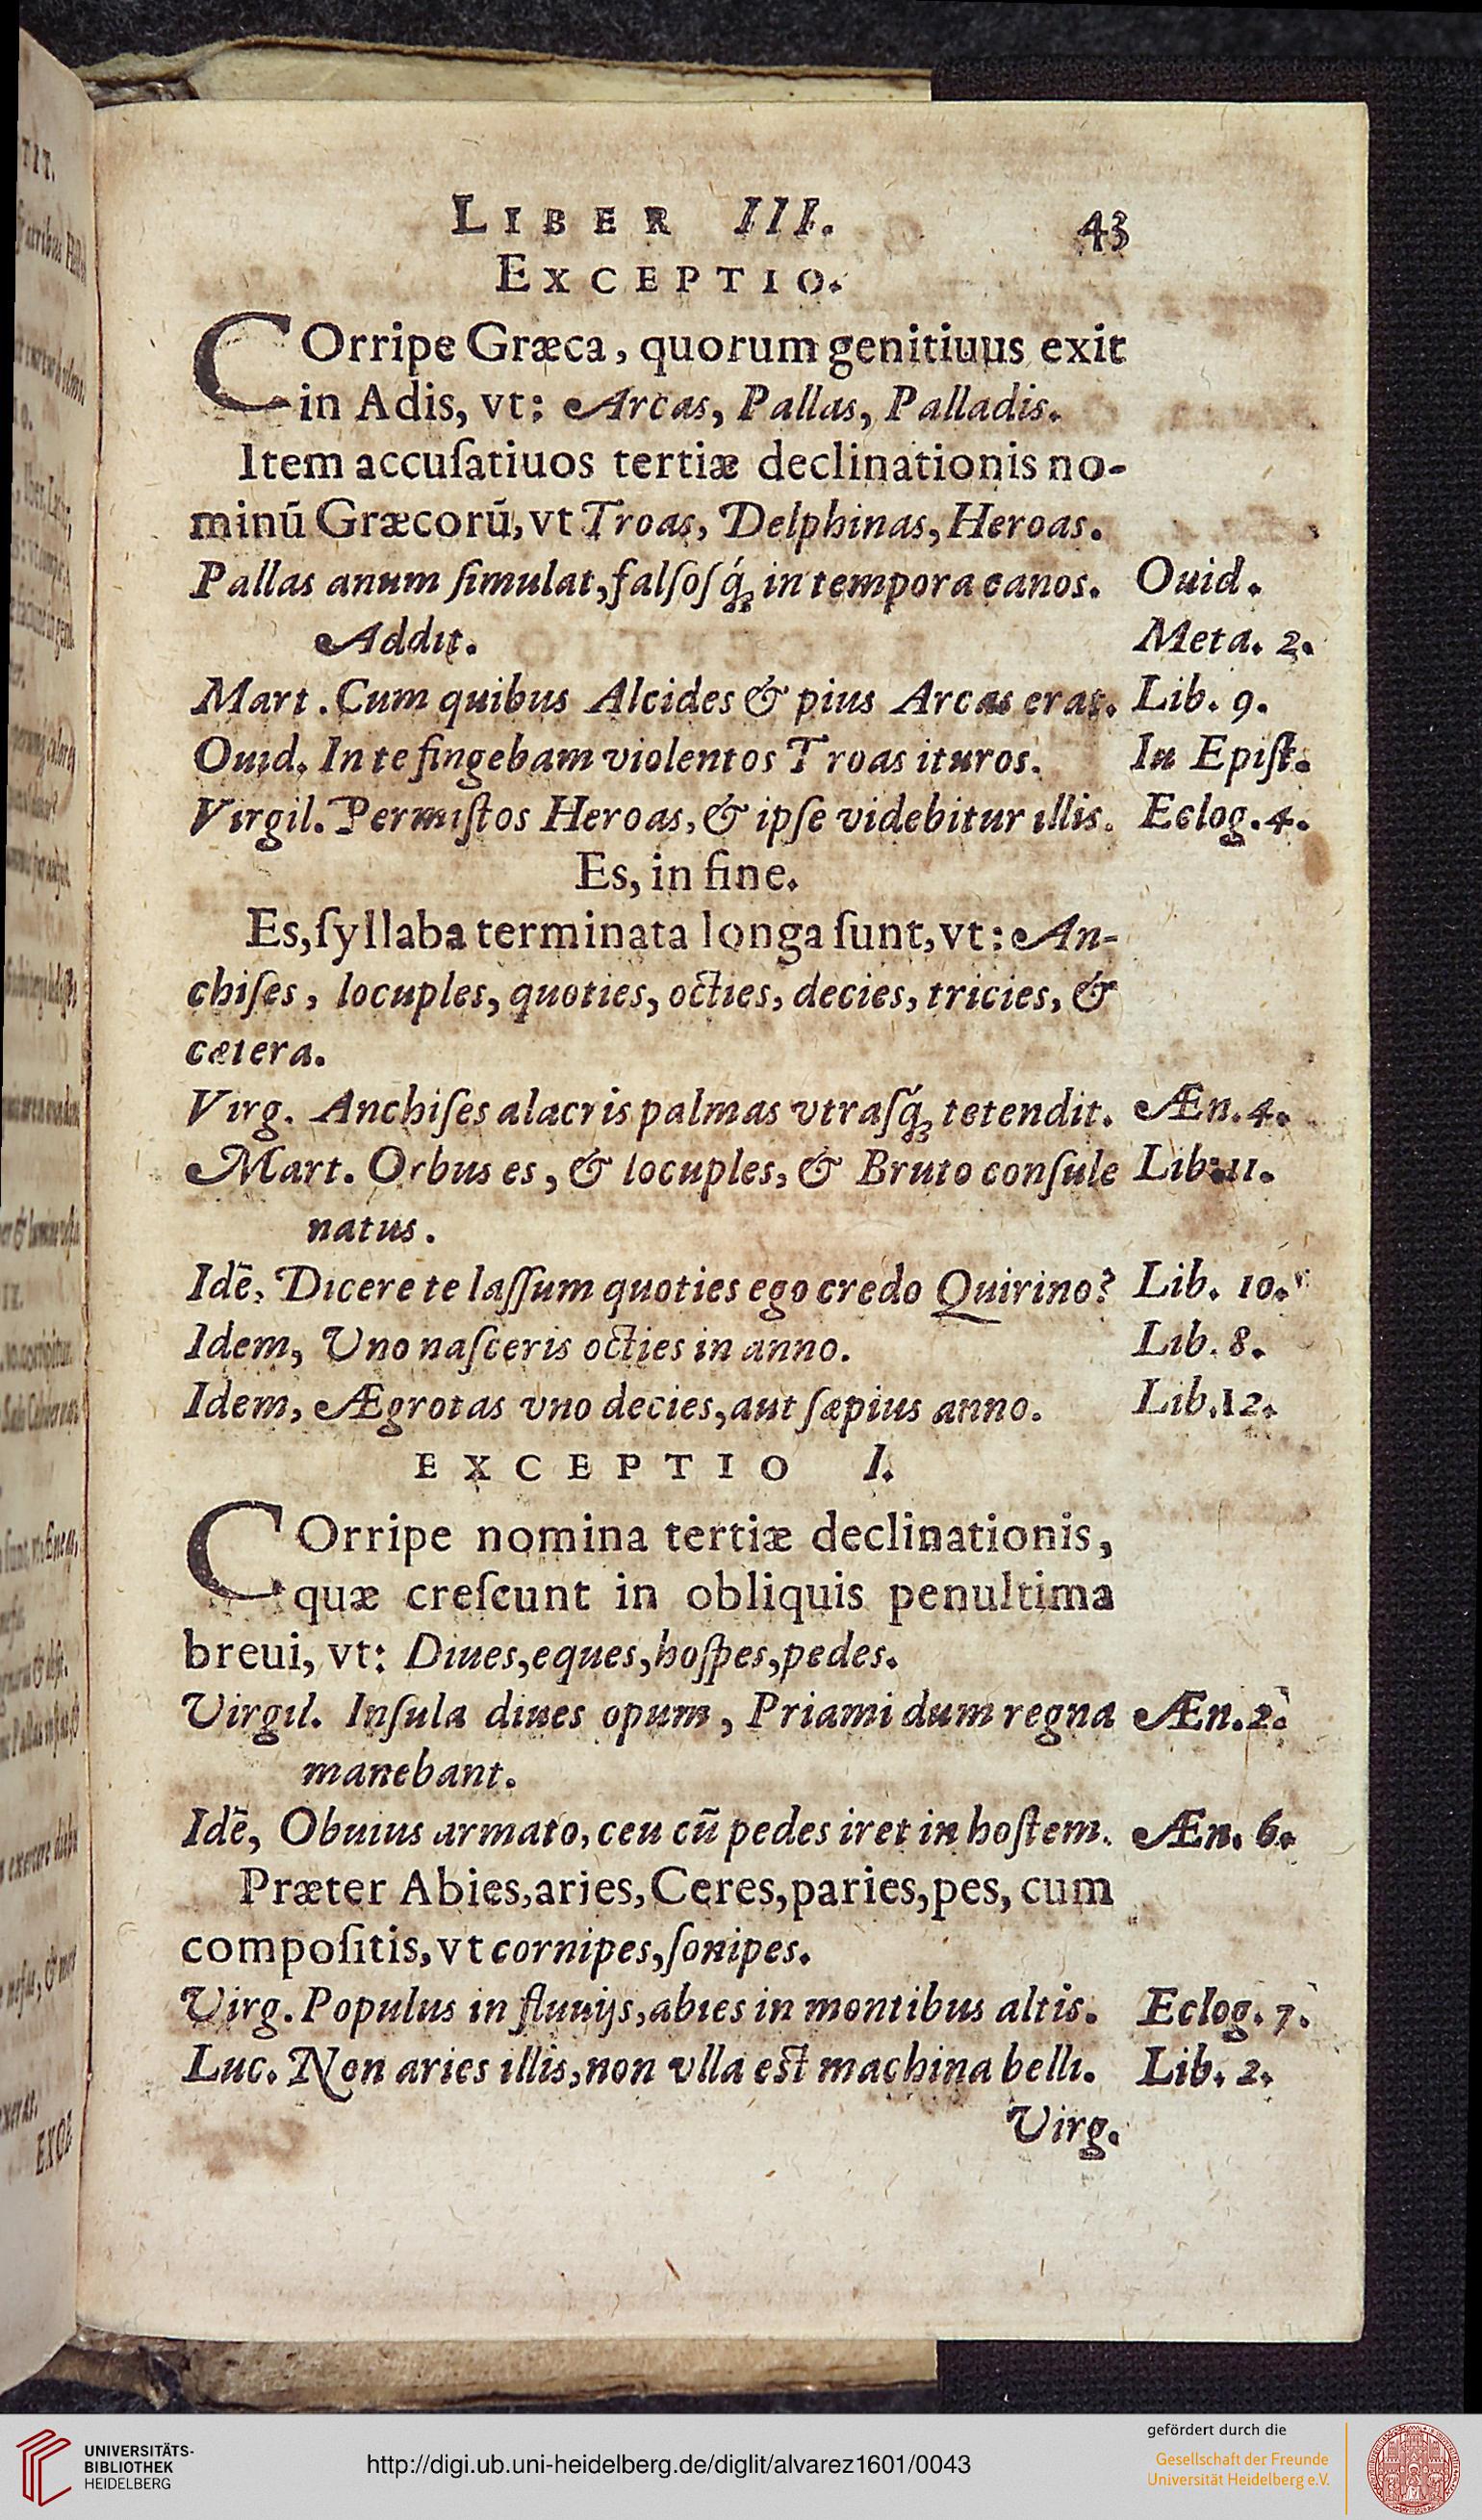 LIBER III. 43
EXCEPTIO.
COrripe Græca, quorum genitiuus exit
in Adis, vt: Arcas, Pallas, Palladis.
Item accuſatiuos tertiæ declinationis no-
minū Græcorū, vt Troas, Delphinas, Heroas.
Pallas anum ſimulat, falſoſq́; in tempora canos. Ouid.
Addit. Meta. 2.
Mart. Cum quibus Alcides & pius Arcas erat. Lib. 9.
Ouid. In te fingebam violentos Troas ituros. In Epiſt.
Virgil. Permiſtos Heroas, & ipſe videbitur illis. Eclog. 4.
Es, in fine.
Es, ſyllaba terminata longa ſunt, vt: An-
chiſes, locuples, quoties, octies, decies, tricies, &
cætera.
Virg. Anchiſes alacris palmas vtraſq́; tetendit. Æn. 4.
Mart. Orbus es, & locuples, & Bruto conſule Lib. 11.
natus.
Idē, Dicere te laſſum quoties ego credo Quirino? Lib. 10.
Idem, Uno naſceris octies in anno. Lib. 8.
Idem, Ægrotas vno decies, aut ſæpius anno. Lib. 12.
EXCEPTIO I.
COrripe nomina tertiæ declinationis,
quæ creſcunt in obliquis penultima
breui, vt: Diues, eques, hoſpes, pedes.
Virgil. Inſula diues opum, Priami dum regna Æn. 2.
manebant.
Idē, Obuius armato, ceu cū pedes iret in hoſtem. Æn. 6.
Præter Abies, aries, Ceres, paries, pes, cum
compoſitis, vt cornipes, ſonipes.
Virg. Populus in fluuijs, abies in montibus altis. Eclog. 7.
Luc. Non aries illis, non vlla est machina belli. Lib. 2.
Virg.
UNIVERSITÄTS-
BIBLIOTHEK
HEIDELBERG
http://digi.ub.uni-heidelberg.de/diglit/alvarez1601/0043
gefördert durch die
Gesellschaft der Freunde
Universität Heidelberg e.V.